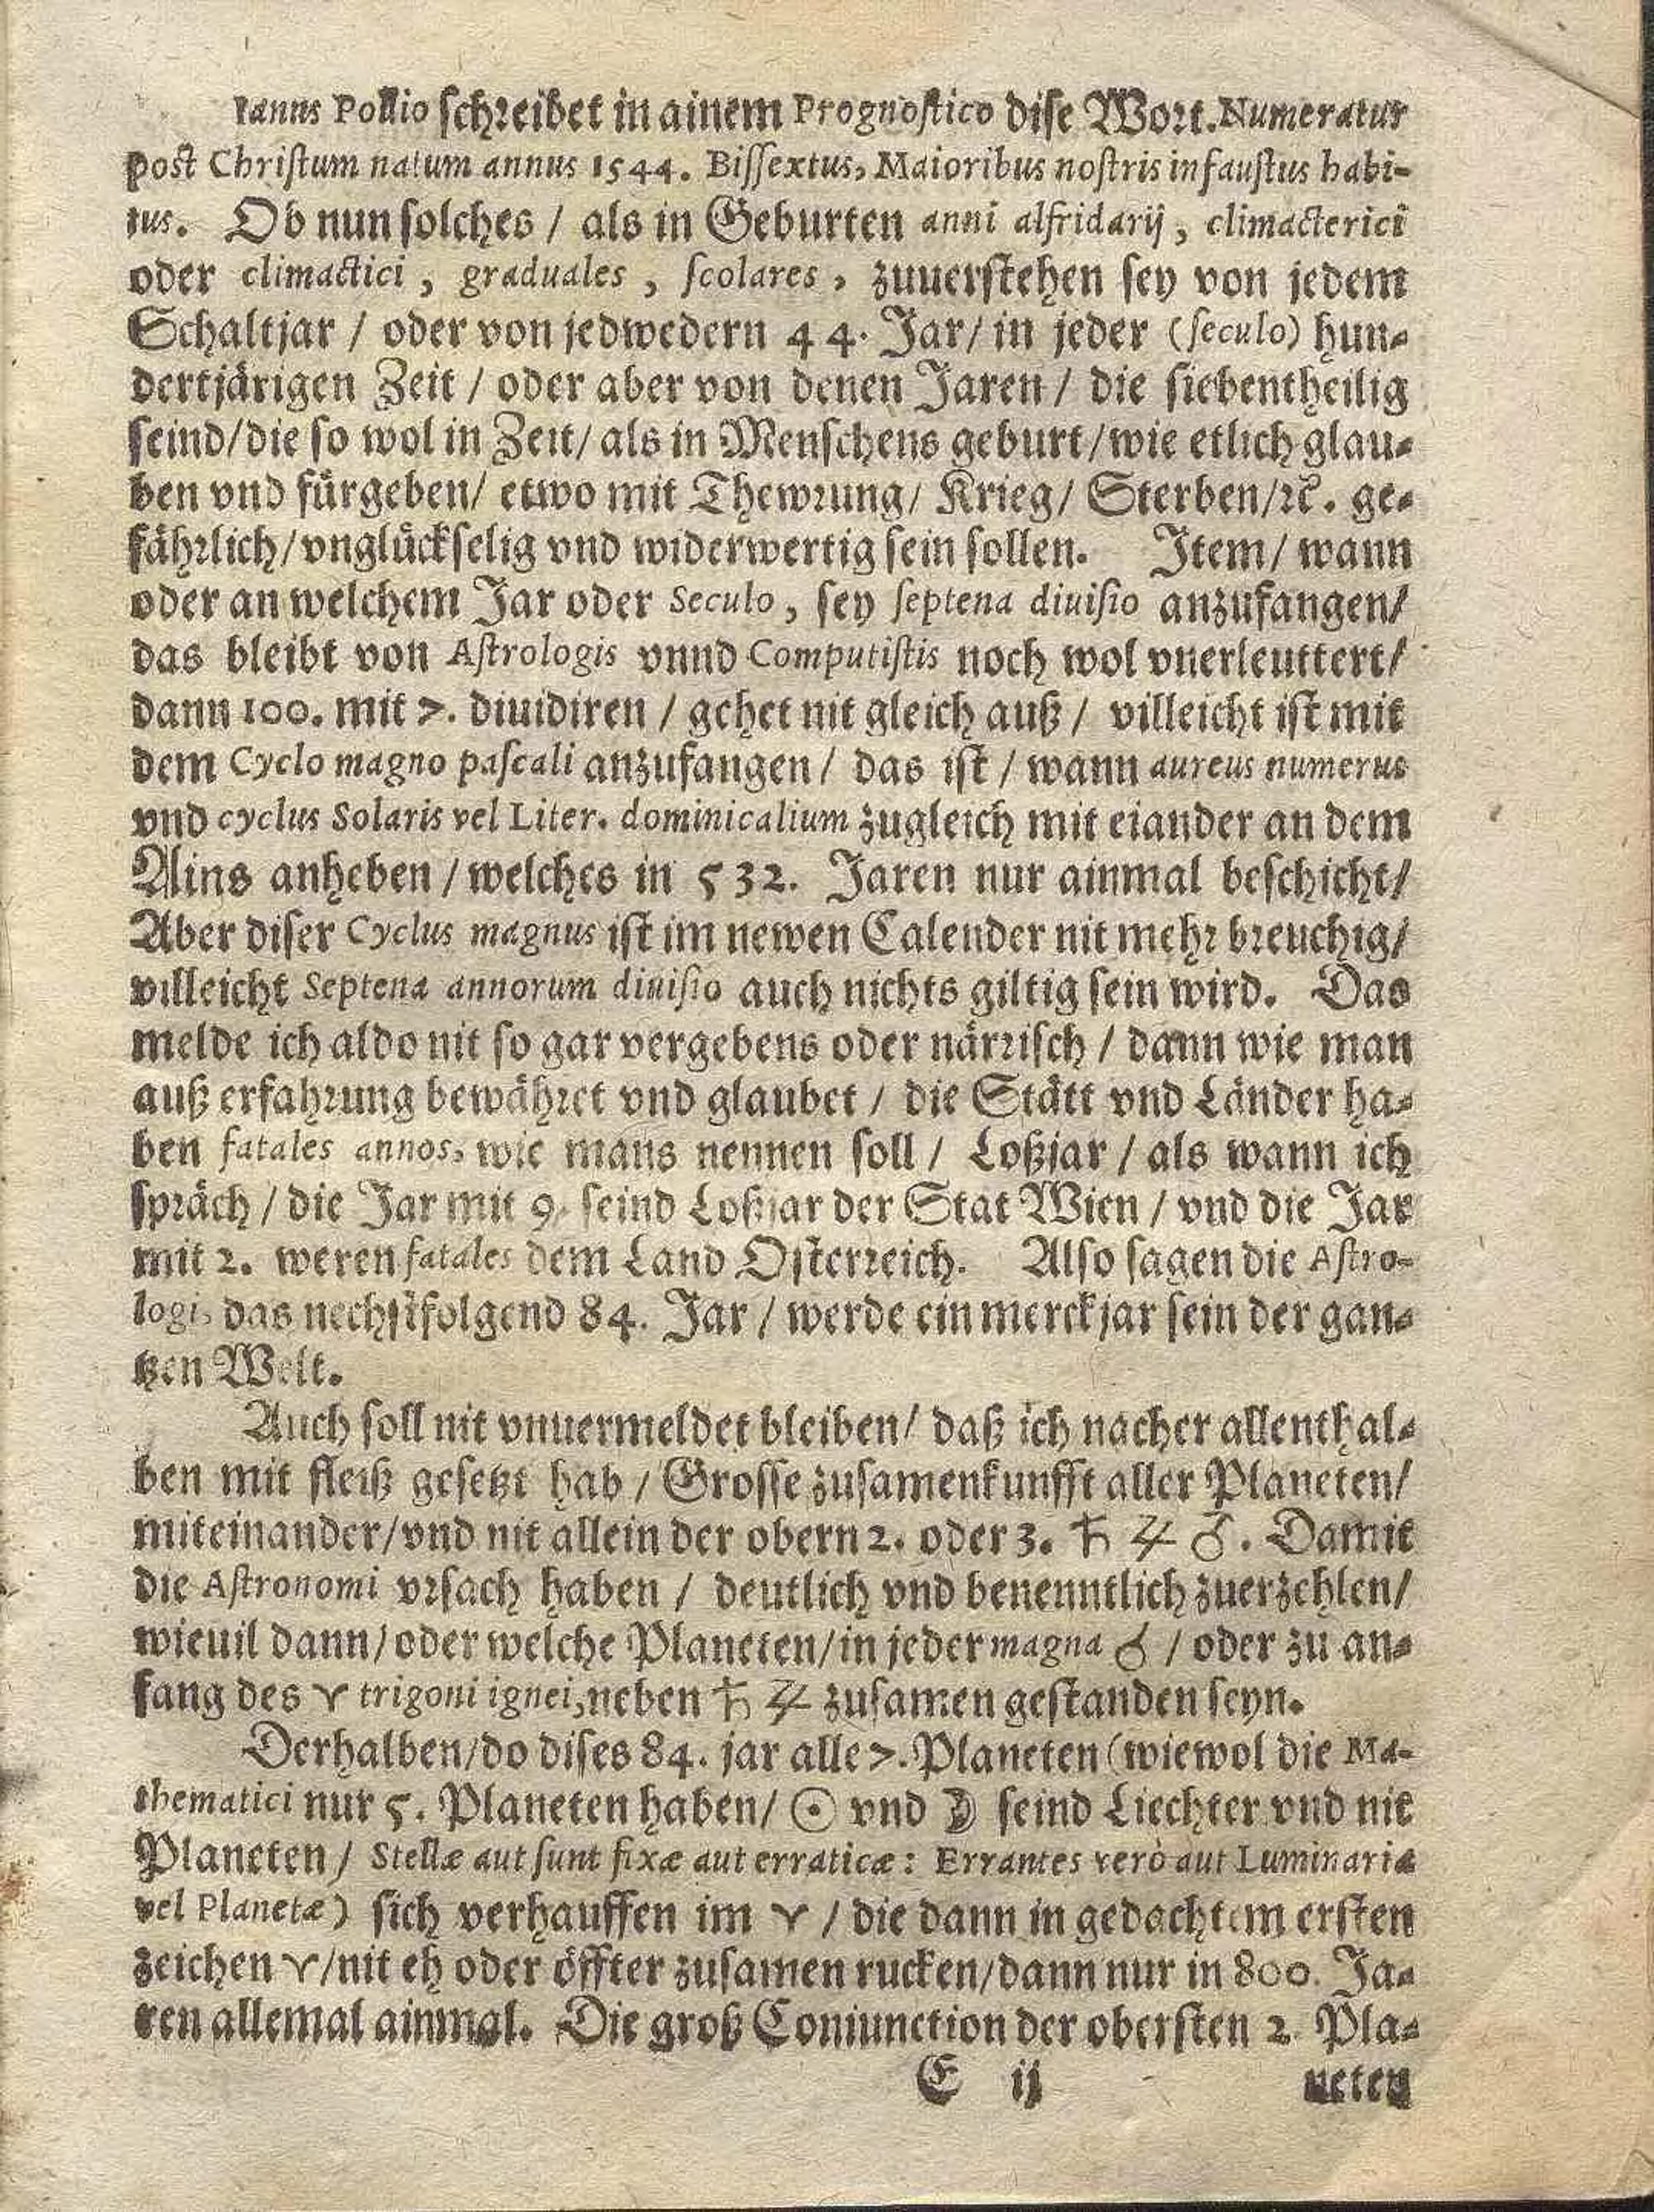 Ianus Pollio schreibet in ainem Prognostico dise Wort. Numeratur
post Christum natum annus 1544. Bissextus, Maioribus nostris infaustus habi-
tus. Ob nun solches / als in Geburten anni alfridarij, climacterici
oder climactici, graduales, scolares, zuuerstehen sey von jedem
Schaltjar / oder von jedwedern 44. Jar / in jeder (seculo) hun-
dertjärigen Zeit / oder aber von denen Jaren / die siebentheilig
seind / die so wol in Zeit / als in Menschens geburt / wie etlich glau-
ben vnd fürgeben / etwo mit Thewrung / Krieg / Sterben / ꝛc. ge-
fährlich / vnglückselig vnd widerwertig sein sollen. Item / wann
oder an welchem Jar oder Seculo, sey septena diuisio anzufangen /
das bleibt von Astrologis vnnd Computistis noch wol vnerleuttert /
dann 100. mit 7. diuidiren / gehet nit gleich auß / villeicht ist mit
dem Cyclo magno pascali anzufangen / das ist / wann aureus numerus
vnd cyclus Solaris vel Liter. dominicalium zugleich mit eiander an dem
Ains anheben / welches in 532. Jaren nur ainmal beschicht /
Aber diser Cyclus magnus ist im newen Calender nit mehr breuchig /
villeicht Septena annorum diuisio auch nichts giltig sein wird. Das
melde ich aldo nit so gar vergebens oder närrisch / dann wie man
auß erfahrung bewähret vnd glaubet / die Stätt vnd Länder ha-
ben fatales annos, wie mans nennen soll / Loßjar / als wann ich
spräch / die Jar mit 9. seind Loßjar der Stat Wien / vnd die Jar
mit 2. weren fatales dem Land Osterreich. Also sagen die Astro-
logi, das nechstfolgend 84. Jar / werde ein merckjar sein der gan-
tzen Welt.
Auch soll nit vnuermeldet bleiben / daß ich nacher allenthal-
ben mit fleiß gesetzt hab / Grosse zusamenkunfft aller Planeten /
miteinander / vnd nit allein der obern 2. oder 3. ♄ ♃ ♂. Damit
die Astronomi vrsach haben / deutlich vnd benenntlich zuerzehlen /
wieuil dann / oder welche Planeten / in jeder magna ☌ / oder zu an-
fang des ♈ trigoni ignei, neben ♄ ♃ zusamen gestanden seyn.
Derhalben / do dises 84. jar alle 7. Planeten (wiewol die Ma-
thematici nur 5. Planeten haben / ☉ vnd ☽ seind Liechter vnd nit
Planeten / Stellæ aut sunt fixæ aut erraticæ: Errantes verò aut Luminaria
vel Planetæ) sich verhauffen im ♈ / die dann in gedachtem ersten
zeichen ♈ / nit eh oder öffter zusamen rucken / dann nur in 800. Ja-
ren allemal ainmal. Die groß Coniunction der obersten 2. Pla-
E ij neten